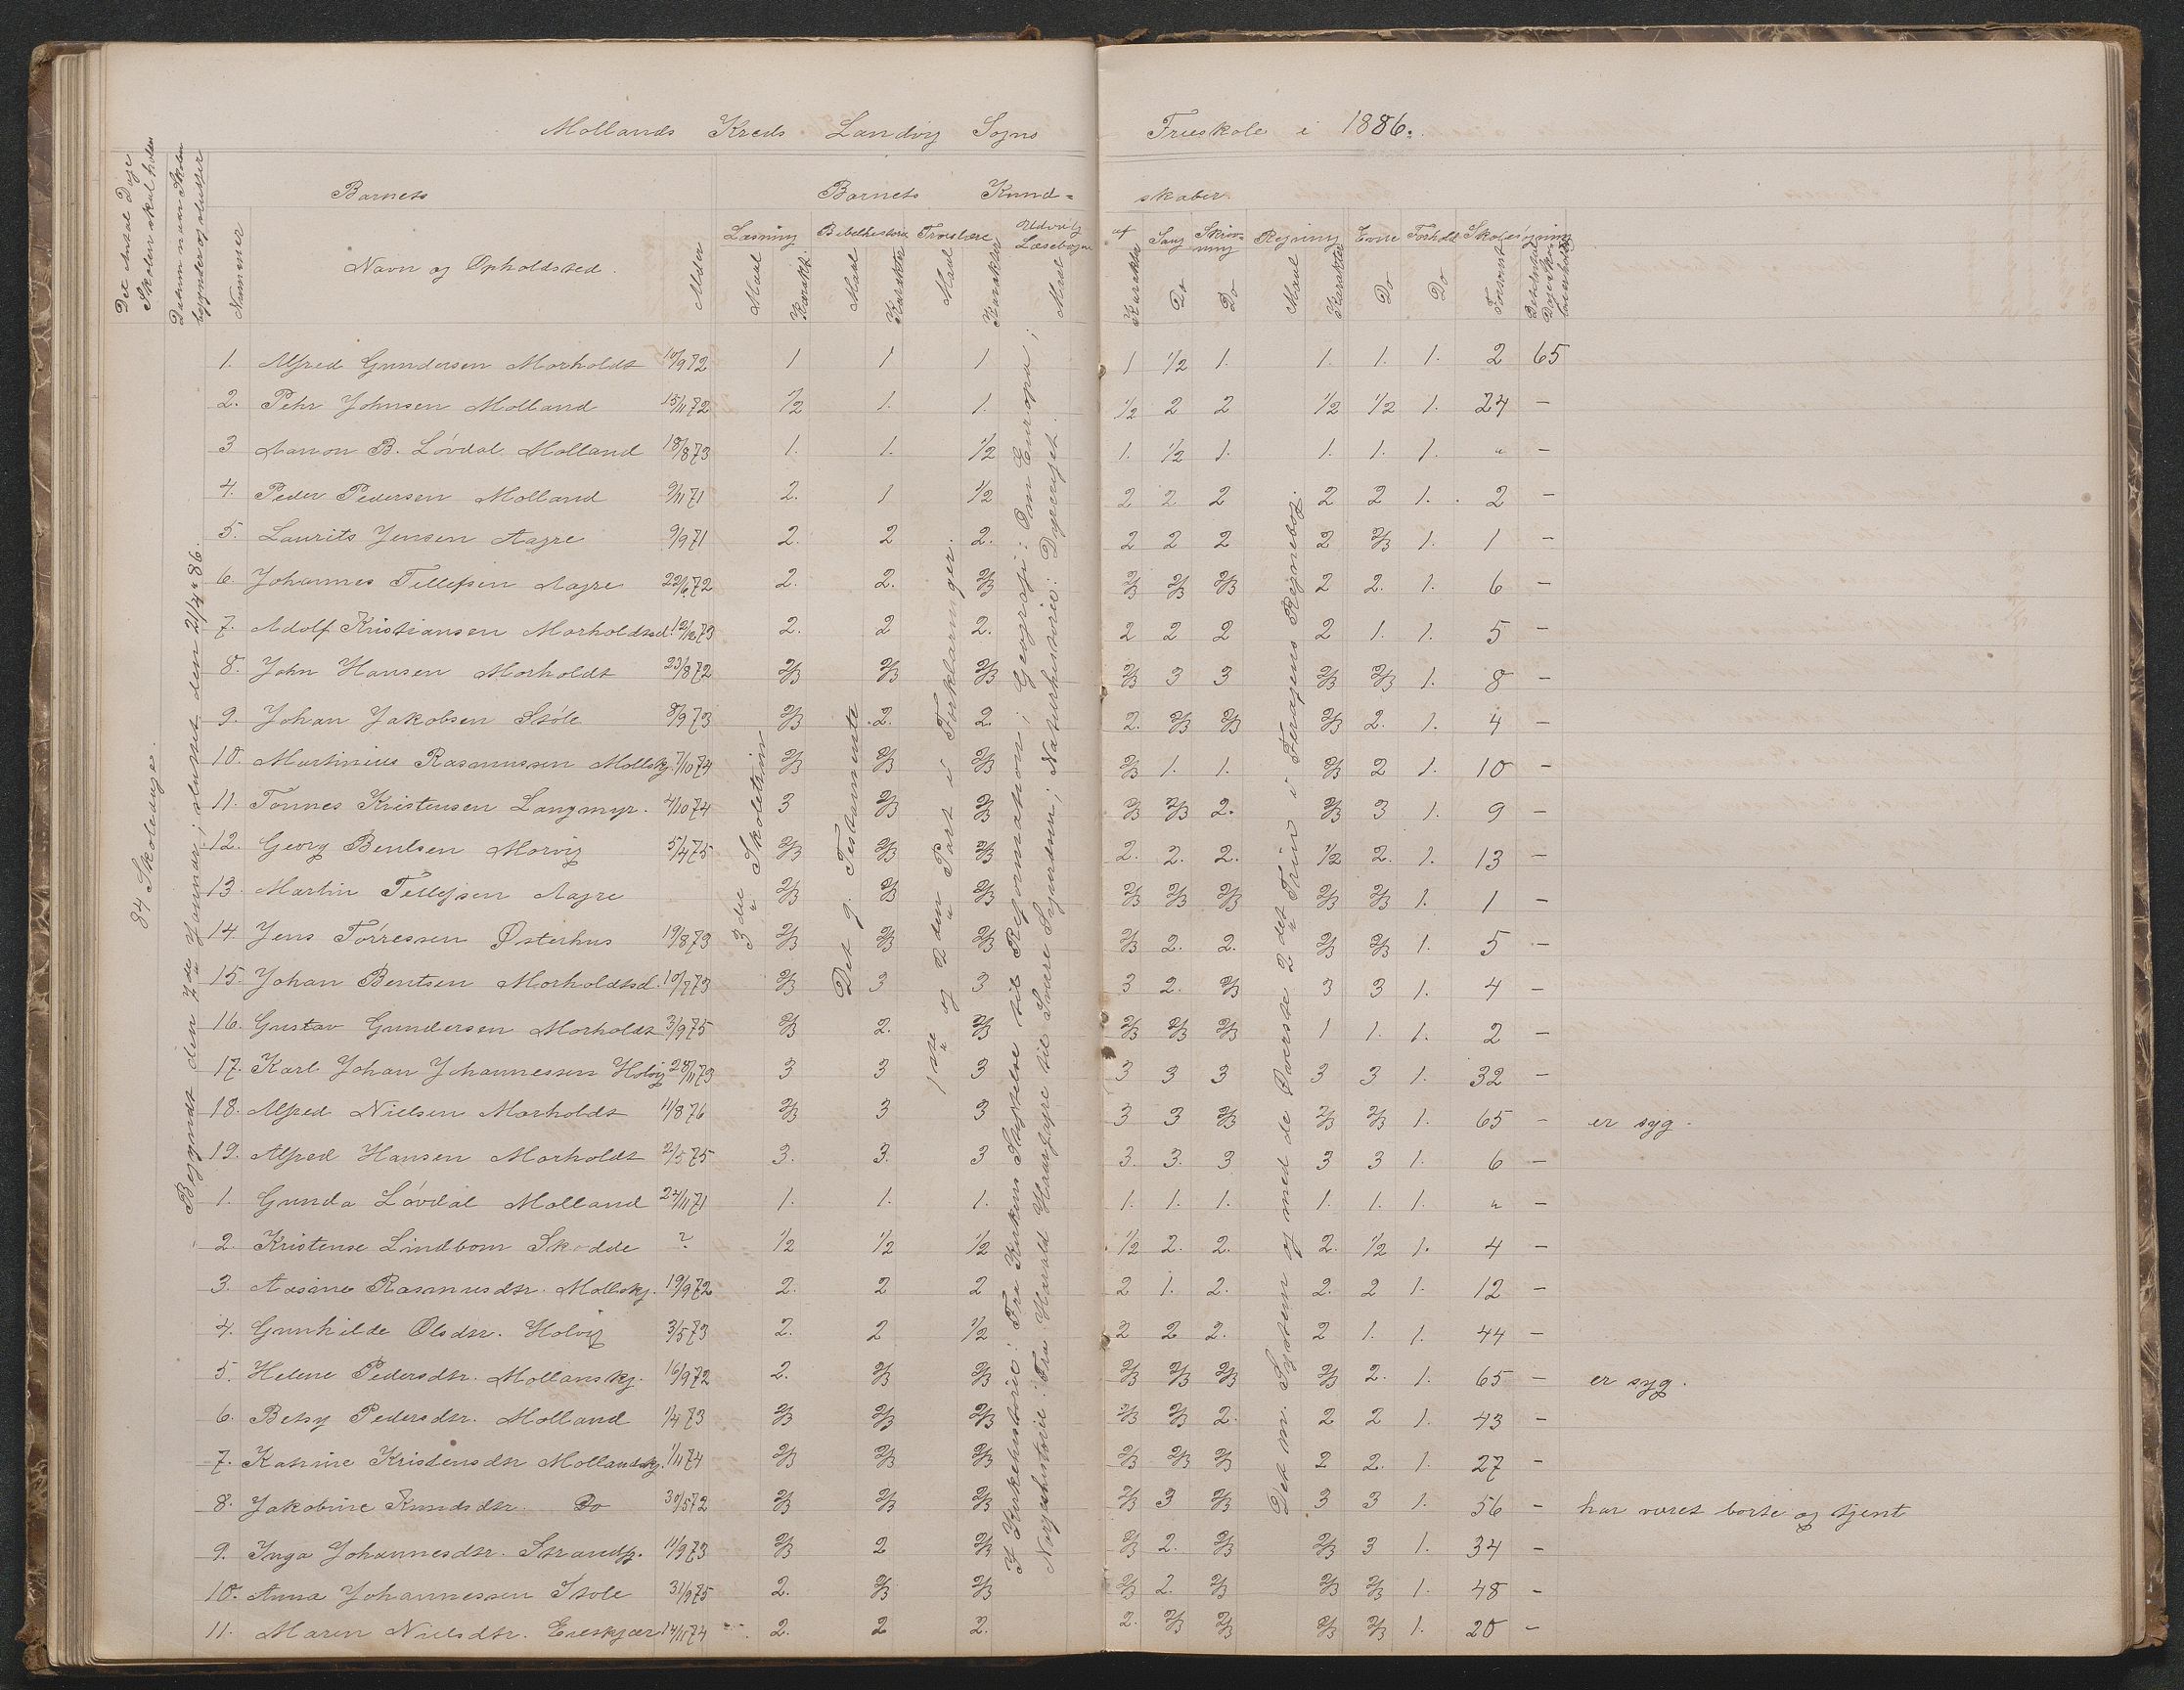 Mollands Kreds Landvig Sogns Frieskole i 1886.
Det Antal Dage Skolen skal holdes
Datum naar Skolen begynder og slutter
Barnets
Barnets Kund- skaber
Nummer
Navn og Opholdssted.
Alder
Læsning Bibelhistorie Troeslære Udvalg af Læsebogen Sang Skrivning Regning Evne Forhold Skolesøgning
Maal Karakter Maal Karakter Maal Karakter Maal Karakter Do Do Maal Karakter Do Do Forsømt Det Antal Dage Skolen er holdt
84 Skoledage.
Begyndt den 7de Januar; sluttet den 21/4 86.
3die Skoletrin
Det g. Testamente
1ste og 2den Part i Forklaringer.
I Kirkehistorie: Fra Kirkens Stiftelse til Reformation; Geografi: Om Europa;
Norgeshistorie: Fra Harald Haarfagre til Svære Sigurdssøn; Naturhistorie: Dyreriget.
Det m. System og med de Øverste 2det Trin i Feragens Regnebog.
1. Alfred Gundersen Morholdt 10/9 72 1 1 1 1 1/2 1. 1. 1. 1. 2 65
2. Pehr Johnsen Molland 15/11 72 1/2 1. 1. 1/2 2 2 1/2 1/2 1. 24 -
3 Aanon B. Lövdal Molland 18/8 73 1. 1. 1/2 1. 1/2 1. 1. 1. 1. " -
4. Peder Pedersen Molland 9/11 71 2. 1 1/2 2 2 2 2 2 1. 2 -
5. Laurits Jensen Aagre 9/9 71 2. 2 2. 2 2 2 2 2/3 1. 1 -
6. Johannes Tellefsen Aagre 22/6 72 2. 2. 2/3 2/3 2/3 2/3 2 2. 1. 6 -
7. Adolf Kristiansen Morholdtsd. 12/12 73 2. 2 2. 2 2 2 2 1. 1. 5 -
8. John Hansen Morholdt 23/8 72 2/3 2/3 2/3 2/3 3 3 2/3 2/3 1. 8 -
9. Johan Jakobsen Stöle 8/9 73 2/3 2. 2. 2. 2/3 2/3 2/3 2. 1. 4 -
10. Martinius Rasmussen Mollskj. 7/10 74 2/3 2/3 2/3 2/3 1. 1. 2/3 2 1. 10 -
11. Tønnes Kristensen Langmyr. 4/10 74 3 2/3 2/3 2/3 2/3 2. 2/3 3 1. 9 -
12. Georg Bentsen Morvig 5/4 75 2/3 2/3 2/3 2. 2. 2. 1/2 2. 1. 13 -
13. Martin Tellefsen Aagre 2/3 2/3 2/3 2/3 2/3 2/3 2/3 2/3 1. 1 -
14. Jens Törressen Østerhus 19/8 73 2/3 2/3 2/3 2/3 2. 2. 2/3 2/3 1. 5 -
15. Johan Bentsen Morholdtsd. 10/7 73 2/3 3 3 3 2. 2/3 3 3 1. 4 -
16. Gustav Gundersen Morholdt 3/9 75 2/3 2. 2/3 2/3 2/3 2/3 1 1. 1. 2 -
17. Karl Johan Johannessen Holvig 28/11 73 3 3 3 3 3 3 3 3 1. 32 -
18. Alfred Nielsen Morholdt 11/8 76 2/3 3 3 3 3 2/3 2/3 2/3 1. 65 - er syg.
19. Alfred Hansen Morholdt 2/5 75 3. 3. 3 3. 3. 3 3 3 1. 6 -
1. Gunda Lövdal Molland 24/11 71 1. 1. 1. 1. 1. 1. 1. 1. 1. " -
2. Kristense Lindbom Skodde ? 1/2 1/2 1/2 1/2 2. 2. 2. 1/2 1. 4 -
3. Aasine Rasmusdtr. Mollskj. 19/9 72 2. 2 2 2 1. 2. 2. 2 1. 12 -
4. Gunhilde Olsdtr. Holvig 3/5 73 2. 2 1/2 2 2 2. 2 1. 1. 44 -
5. Helene Pedersdtr. Mollanskj. 16/9 72 2. 2/3 2/3 2/3 2/3 2/3 2/3 2. 1. 65 - er syg.
6. Betsy Pedersdtr. Molland 1/4 73 2/3 2/3 2/3 2/3 2/3 2. 2 2 1. 43 -
7. Kathrine Kristensdtr Mollandskj. 1/11 74 2/3 2/3 2/3 2/3 2/3 2/3 2 2. 1. 27 -
8. Jakobine Knudsdtr. Do 30/5 72 2/3 2/3 2/3 2/3 3 2/3 3 3 1. 56 - har været borte og tjent
9. Inga Johannesdtr. 11/9 73 2/3 2 2/3 2/3 2. 2/3 2/3 3 1. 34 -
10. Anna Johannessen Stole 31/9 75 2. 2/3 2/3 2/3 2. 2/3 2/3 2/3 1. 48 -
11. Maren Nielsdtr. Ereskjær 14/11 74 2. 2 2. 2. 2/3 2/3 2/3 2/3 1. 20 -